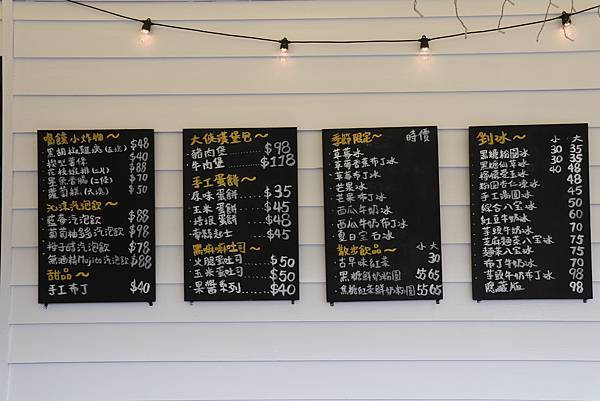 嘴饞小炸物～
黑胡椒雞塊(6塊) $48
脆型薯條 $40
花枝丸排(4片) $88
墨魚香腸(2條) $70
蘿蔔糕(6塊) $50
沁涼汽泡飲～
藍莓汽泡飲 $88
葡萄柚多多汽泡飲 $98
梅子醋汽泡飲 $78
無酒精Mojito汽泡飲 $88
甜品～
手工布丁 $40
大俠漢堡包～
豬肉堡 $98
牛肉堡 $118
手工蛋餅～
原味蛋餅 $35
玉米蛋餅 $45
培根蛋餅 $48
香濃起士 $45
黑嘛嘛吐司～
火腿蛋吐司 $50
玉米蛋吐司 $50
果醬系列 $40
季節限定～ 時價
草莓冰
草莓牛奶冰
草莓香蕉布丁冰
草莓布丁冰
芒果冰
芒果布丁冰
西瓜牛奶冰
西瓜牛奶布丁冰
夏日宝石冰
散步飲品～ 小 大
古早味紅茶 30
黑糖鮮奶粉圓 55 65
焦糖紅茶鮮奶粉圓 55 65
剉冰～ 小 大
黑糖粉圓冰 30 35
黑糖仙草冰 30 35
檸檬愛玉冰 40 48
粉圓杏仁凍冰 48
手工湯圓冰 45
綜合八宝冰 50
紅豆牛奶冰 60
芋頭牛奶冰 70
芝麻麵茶八宝冰 75
麵茶八宝冰 75
布丁牛奶冰 70
芋頭牛奶布丁冰 98
隱藏版 98